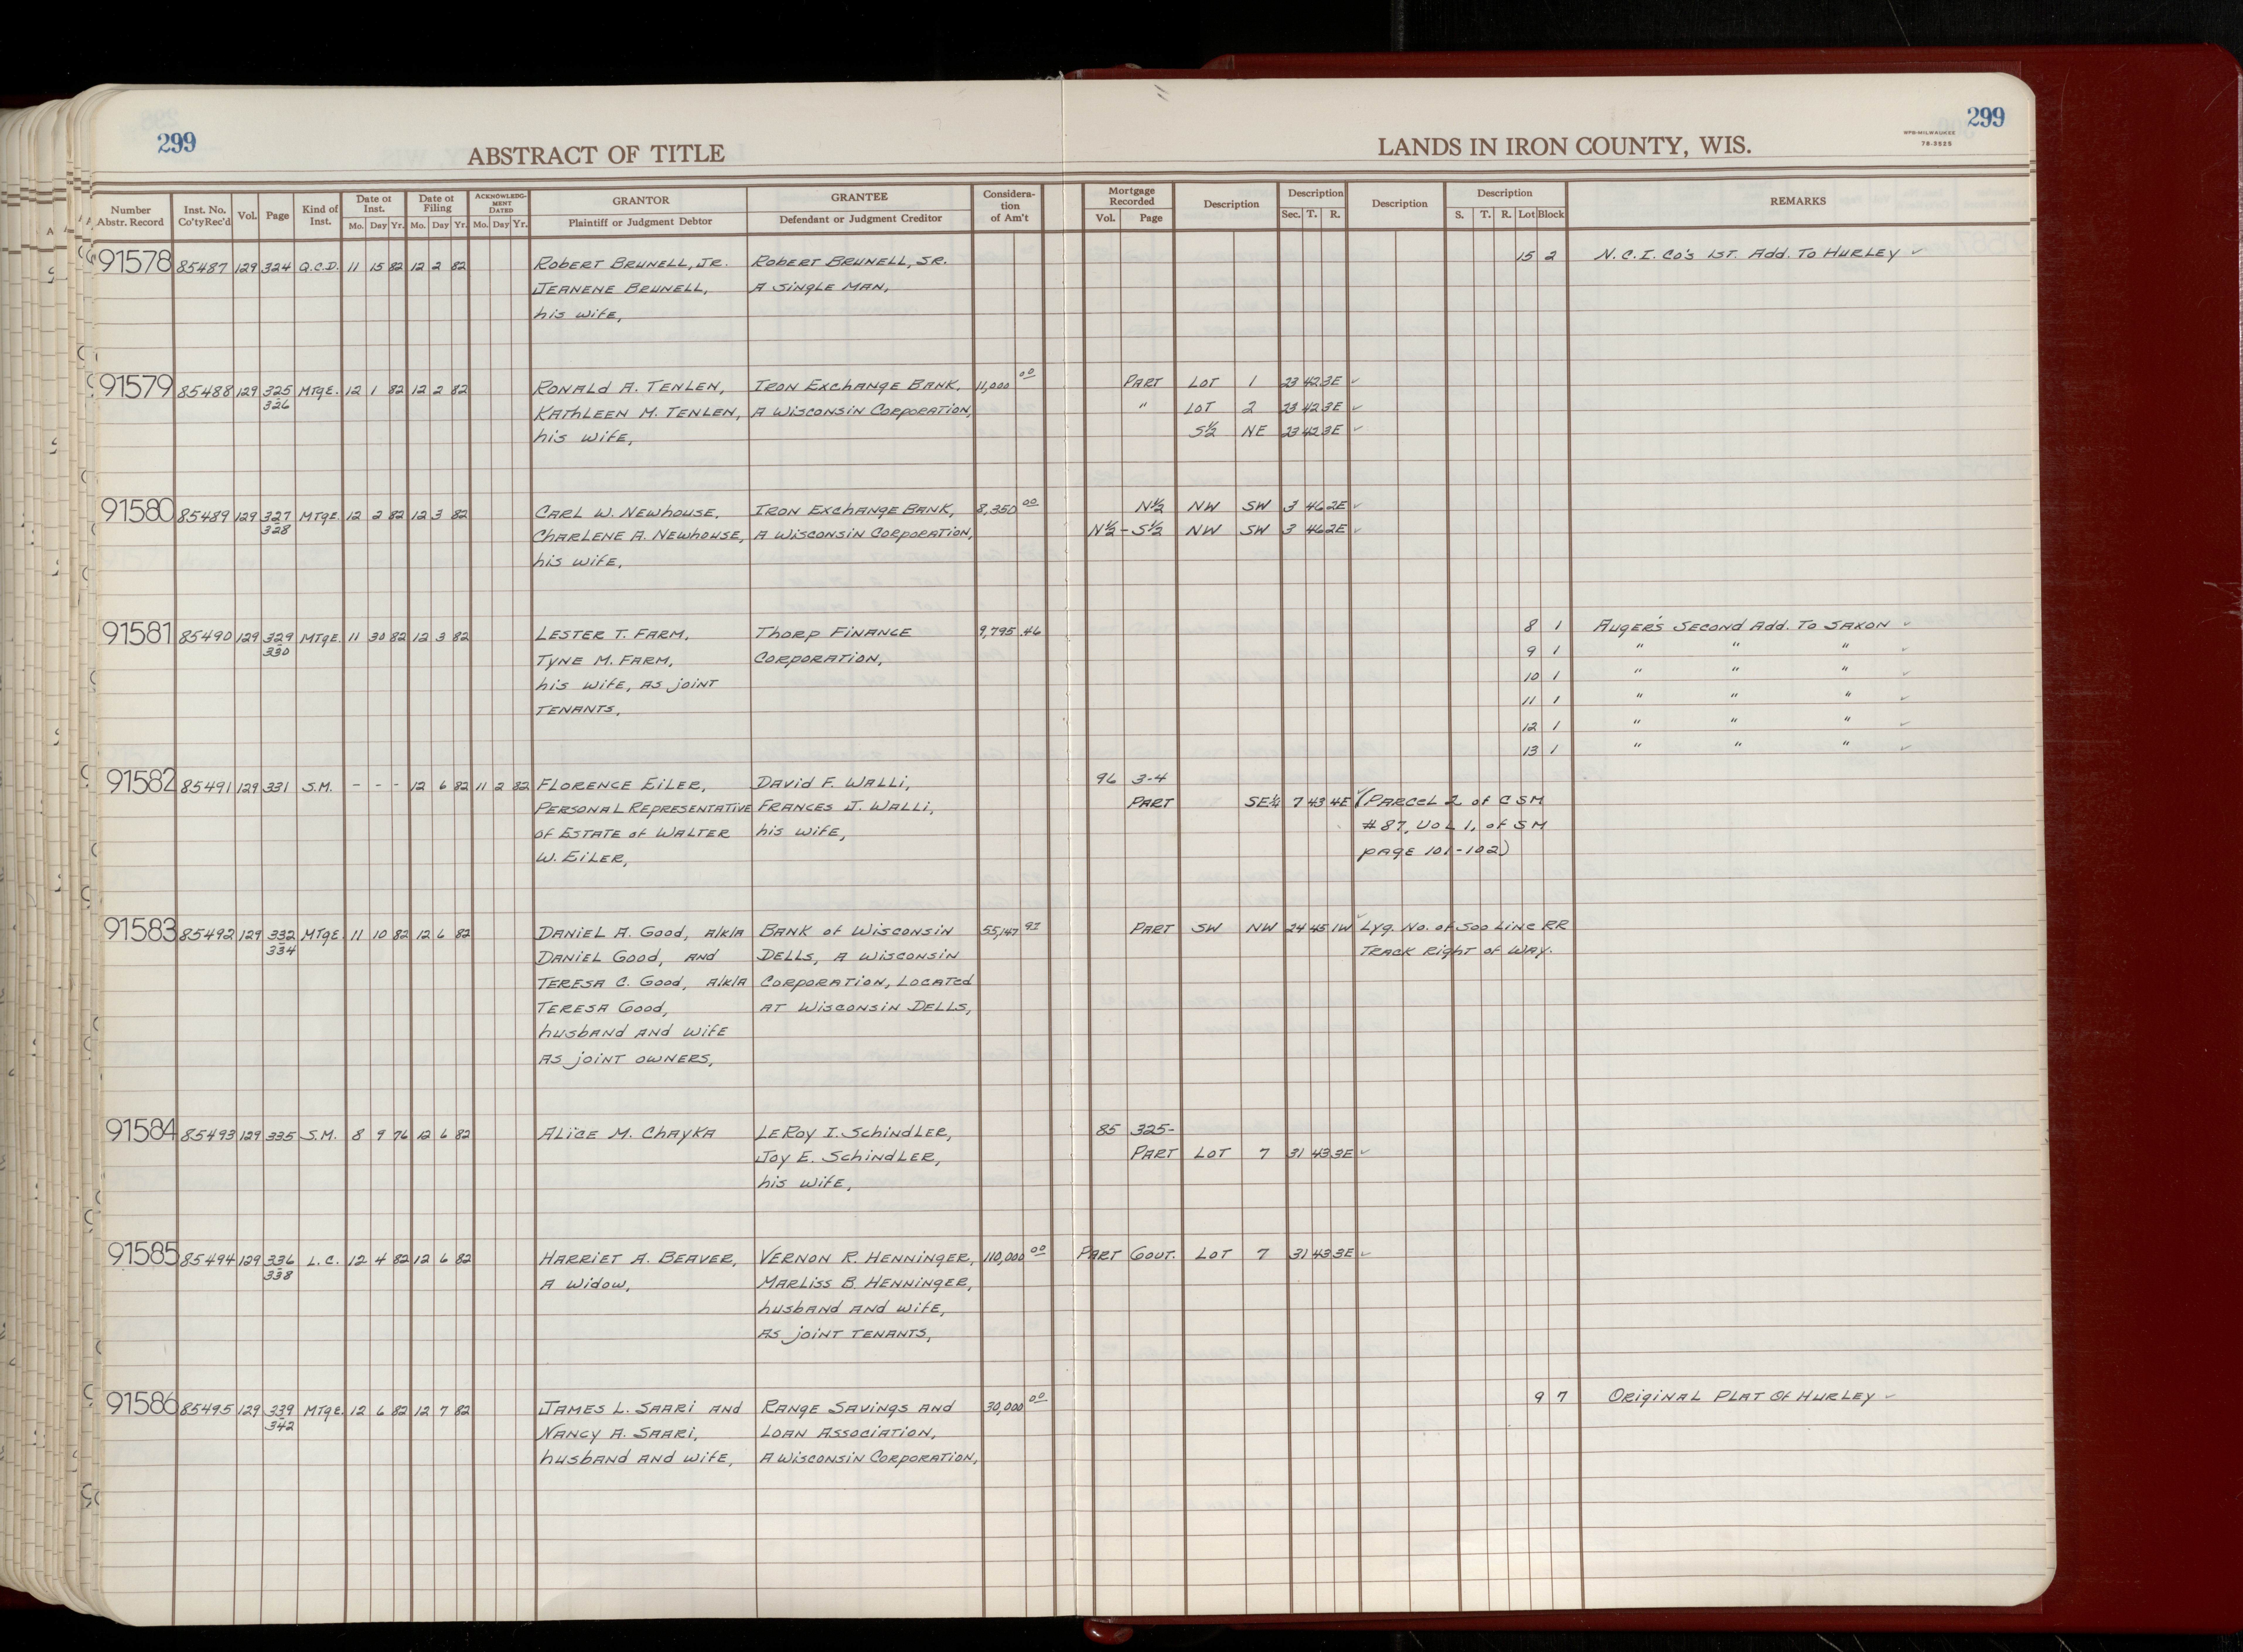 299
ABSTRACT OF TITLE
LANDS IN IRON COUNTY, WIS.
WPB-MILWAUKEE
78-3525
299
Number Abstr. Record | Inst. No. Co'tyRec'd | Vol. | Page | Kind of Inst. | Date of Inst. Mo. Day Yr. | Date of Filing Mo. Day Yr. | ACKNOWLEDGMENT DATED Mo. Day Yr. | GRANTOR Plaintiff or Judgment Debtor | GRANTEE Defendant or Judgment Creditor | Consideration of Am't | Mortgage Recorded Vol. Page | Description | Description Sec. T. R. | Description | Description S. T. R. Lot Block | REMARKS
91578 85487 129 324 Q.C.D. 11 15 82 12 2 82 Robert Brunell, Jr. Robert Brunell, Sr. 15 2 N.C.I. Co's 1st. Add. To Hurley ✓
Jeanene Brunell, A Single Man,
his wife,
91579 85488 129 325 Mtge. 12 1 82 12 2 82 Ronald A. Tenlen, Iron Exchange Bank, 11,000 00 Part Lot 1 23 42 3E ✓
326 Kathleen M. Tenlen, A Wisconsin Corporation, " Lot 2 23 42 3E ✓
his wife, S½ NE 23 42 3E ✓
91580 85489 129 327 Mtge. 12 2 82 12 3 82 Carl W. Newhouse, Iron Exchange Bank, 8,350 00 N½ NW SW 3 46 2E ✓
328 Charlene A. Newhouse, A Wisconsin Corporation, N½ - S½ NW SW 3 46 2E ✓
his wife,
91581 85490 129 329 Mtge. 11 30 82 12 3 82 Lester T. Farm, Thorp Finance 9,795 46 8 1 Auger's Second Add. To Saxon ✓
330 Tyne M. Farm, Corporation, 9 1 " " " ✓
his wife, as joint 10 1 " " " ✓
tenants, 11 1 " " " ✓
12 1 " " " ✓
13 1 " " " ✓
91582 85491 129 331 S.M. - - - 12 6 82 11 2 82 Florence Eiler, David F. Walli, 96 3-4
Personal Representative Frances J. Walli, Part SE¼ 7 43 4E ✓ (Parcel 2 of CSM
of Estate of Walter his wife, #87, Vol 1, of SM
W. Eiler, page 101-102)
91583 85492 129 332 Mtge. 11 10 82 12 6 82 Daniel A. Good, a/k/a Bank of Wisconsin 55,147 97 Part SW NW 24 45 1W ✓ Lyg. No. of Soo Line RR
334 Daniel Good, and Dells, a Wisconsin Track Right of Way.
Teresa C. Good, a/k/a Corporation, Located
Teresa Good, at Wisconsin Dells,
husband and wife
as joint owners,
91584 85493 129 335 S.M. 8 9 76 12 6 82 Alice M. Chayka LeRoy I. Schindler, 85 325-
Joy E. Schindler, Part Lot 7 31 43 3E ✓
his wife,
91585 85494 129 336 L.C. 12 4 82 12 6 82 Harriet A. Beaver, Vernon R. Henninger, 110,000 00 Part Gout. Lot 7 31 43 3E ✓
338 A Widow, Marliss B. Henninger,
husband and wife,
as joint tenants,
91586 85495 129 339 Mtge. 12 6 82 12 7 82 James L. Saari and Range Savings and 30,000 00 9 7 Original Plat Of Hurley ✓
342 Nancy A. Saari, Loan Association,
husband and wife, A Wisconsin Corporation,